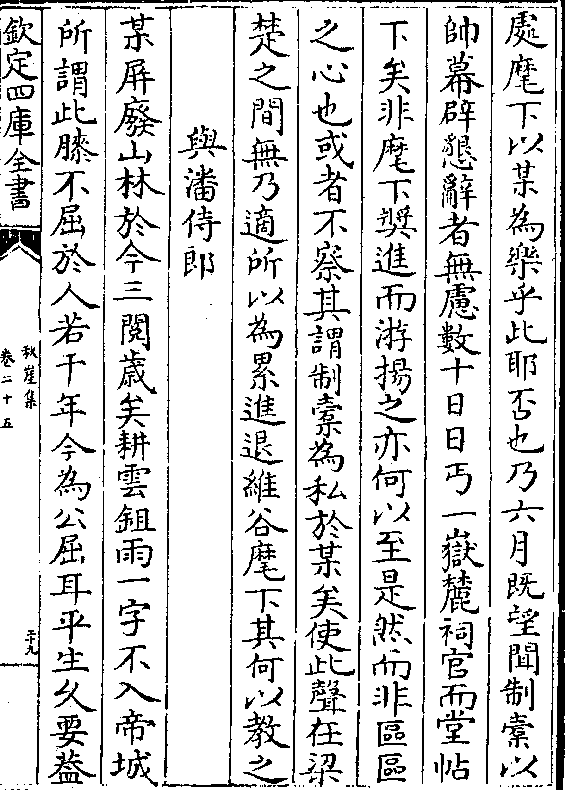 處麾下以某為樂乎此耶否也乃六月既望聞制橐以
帥幕辟懇辭者無慮數十日日丐一嶽麓祠官而堂帖
下矣非麾下獎進而游揚之亦何以至是然而非區區
之心也或者不察其謂制橐為私於某矣使此聲在梁
楚之間無乃適所以為累進退維谷麾下其何以教之
與潘侍郎
某屏廢山林於今三閱歲矣耕雲鉏雨一字不入帝城
所謂此膝不屈於人若干年今為公屈耳平生久要葢
欽定四庫全書
秋崖集
卷二十五
二十九